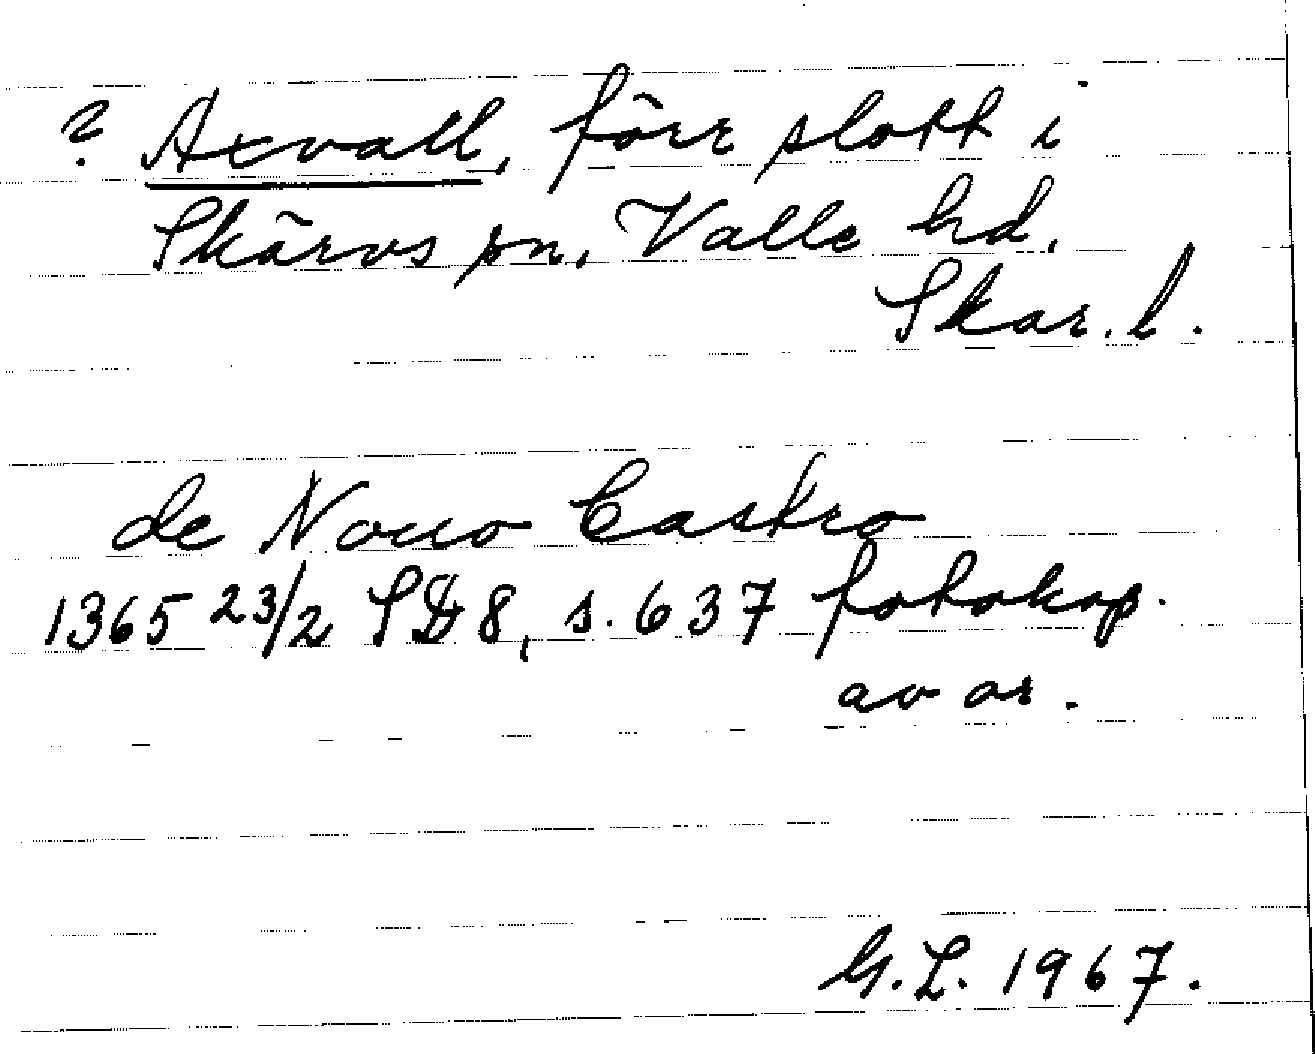 ? Axvall, förr slott i
Skärvs sn, Valle hd.
Skar. l.
de Nouo Castro
1365 23/2 SD 8, s. 637 fotokop.
av or.
G.L. 1967.